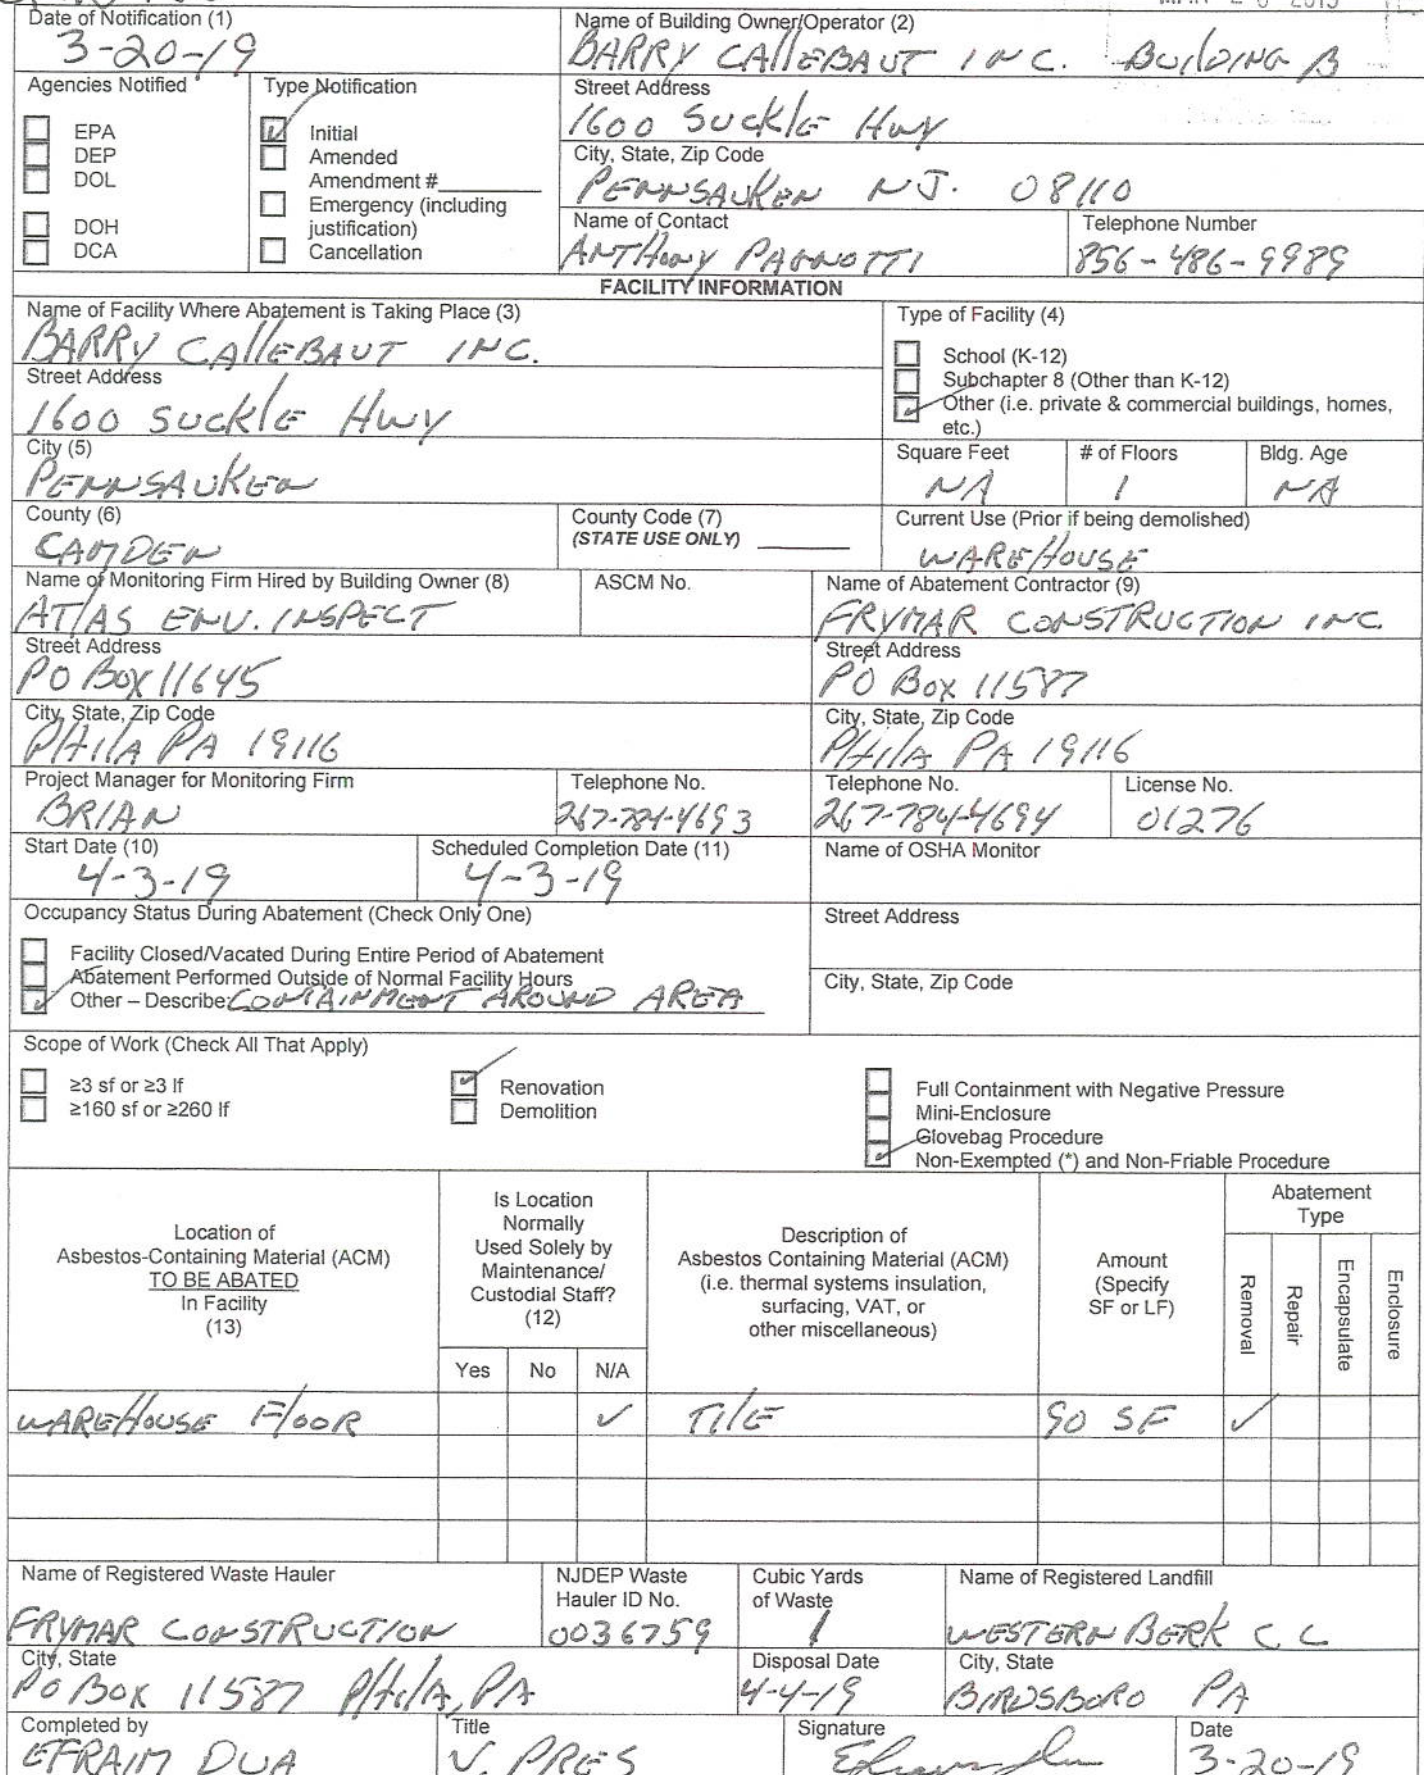 Date of Notification (1)
3-20-19
Name of Building Owner/Operator (2)
BARRY CAllEBAUT INC. BuilDING B
Agencies Notified
EPA
DEP
DOL
DOH
DCA
Type Notification
Initial
Amended
Amendment #
Emergency (including
justification)
Cancellation
Street Address
1600 SuckLE Hwy
City, State, Zip Code
PENNSAUKEN NJ. 08110
Name of Contact
ANTHONY PAGNOTTI
Telephone Number
856-486-9989
FACILITY INFORMATION
Name of Facility Where Abatement is Taking Place (3)
BARRY CAllEBAUT INC.
Street Address
1600 SuckLE Hwy
City (5)
PENNSAUKEN
County (6)
CAMDEN
County Code (7)
(STATE USE ONLY)
Type of Facility (4)
School (K-12)
Subchapter 8 (Other than K-12)
Other (i.e. private & commercial buildings, homes,
etc.)
Square Feet
NA
# of Floors
1
Bldg. Age
NA
Current Use (Prior if being demolished)
WAREHOUSE
Name of Monitoring Firm Hired by Building Owner (8)
ATLAS ENV. INSPECT
ASCM No.
Name of Abatement Contractor (9)
FRYMAR CONSTRUCTION INC.
Street Address
PO Box 11645
Street Address
PO Box 11587
City, State, Zip Code
PHILA PA 19116
City, State, Zip Code
PHILA PA 19116
Project Manager for Monitoring Firm
BRIAN
Telephone No.
267-784-4693
Telephone No.
267-784-4694
License No.
01276
Start Date (10)
4-3-19
Scheduled Completion Date (11)
4-3-19
Name of OSHA Monitor
Occupancy Status During Abatement (Check Only One)
Facility Closed/Vacated During Entire Period of Abatement
Abatement Performed Outside of Normal Facility Hours
Other – Describe: CONTAINMENT AROUND AREA
Street Address
City, State, Zip Code
Scope of Work (Check All That Apply)
≥3 sf or ≥3 lf
≥160 sf or ≥260 lf
Renovation
Demolition
Full Containment with Negative Pressure
Mini-Enclosure
Glovebag Procedure
Non-Exempted (*) and Non-Friable Procedure
Location of
Asbestos-Containing Material (ACM)
TO BE ABATED
In Facility
(13)
Is Location
Normally
Used Solely by
Maintenance/
Custodial Staff?
(12)
Yes
No
N/A
Description of
Asbestos Containing Material (ACM)
(i.e. thermal systems insulation,
surfacing, VAT, or
other miscellaneous)
Amount
(Specify
SF or LF)
Abatement
Type
Removal
Repair
Encapsulate
Enclosure
WAREHOUSE FLOOR ✓ TILE 90 SF ✓
Name of Registered Waste Hauler
FRYMAR CONSTRUCTION
NJDEP Waste
Hauler ID No.
0036759
Cubic Yards
of Waste
1
Name of Registered Landfill
WESTERN BERK C C
City, State
PO BOX 11587 PHILA, PA
Disposal Date
4-4-19
City, State
BIRDSBORO PA
Completed by
EFRAIM DUA
Title
V. PRES
Signature
Date
3-20-19